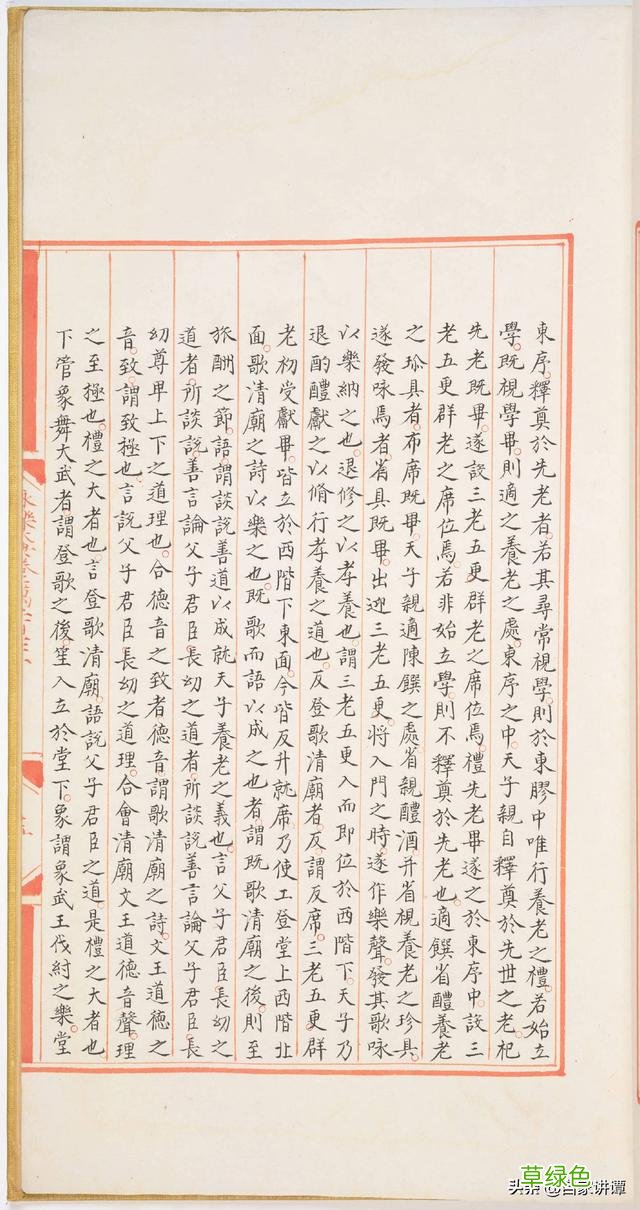 東序。釋奠於先老者。若其尋常視學。則於東膠中唯行養老之禮。若始立
學。既視學畢。則適之養老之處。東序之中。天子親自釋奠於先世之老。祀
先老既畢。遂設三老五更群老之席位焉。禮先老畢。遂之於東序中。設三
老五更群老之席位焉。若非始立學。則不釋奠於先老也。適饌省醴。養老
之珍具者。布席既畢。天子親適陳饌之處。省親醴酒。幷省視養老之珍具。
遂發咏焉者。省具既畢。出迎三老五更。將入門之時。遂作樂聲。發其歌咏
以樂納之也。退修之以孝養也。謂三老五更入而即位於西階下。天子乃
退酌醴獻之。以脩行孝養之道也。反登歌清廟者。反謂反席。三老五更群
老初受獻畢。皆立於西階下東面。今皆反升就席。乃使工登堂上西階北
面。歌清廟之詩以樂之也。既歌而語以成之也者。謂既歌清廟之後。則至
旅酬之節。語謂談說善道。以成就天子養老之義也。言父子君臣。長幼之
道者。所談說善言論父子君臣。長幼之道者。所談說善言論父子君臣。長
幼尊卑上下之道理也。合德音之致者。德音謂歌清廟之詩。文王道德之
音。致謂致極也。言說父子君臣。長幼之道理。合會清廟文王道德音聲。理
之至極也。禮之大者也。言登歌清廟。語說父子君臣之道。是禮之大者也
下管象。舞大武者。謂登歌之後。笙入立於堂下。象謂象武王伐紂之樂。堂
永樂大典卷
草绿色
头条 @吕家讲谭